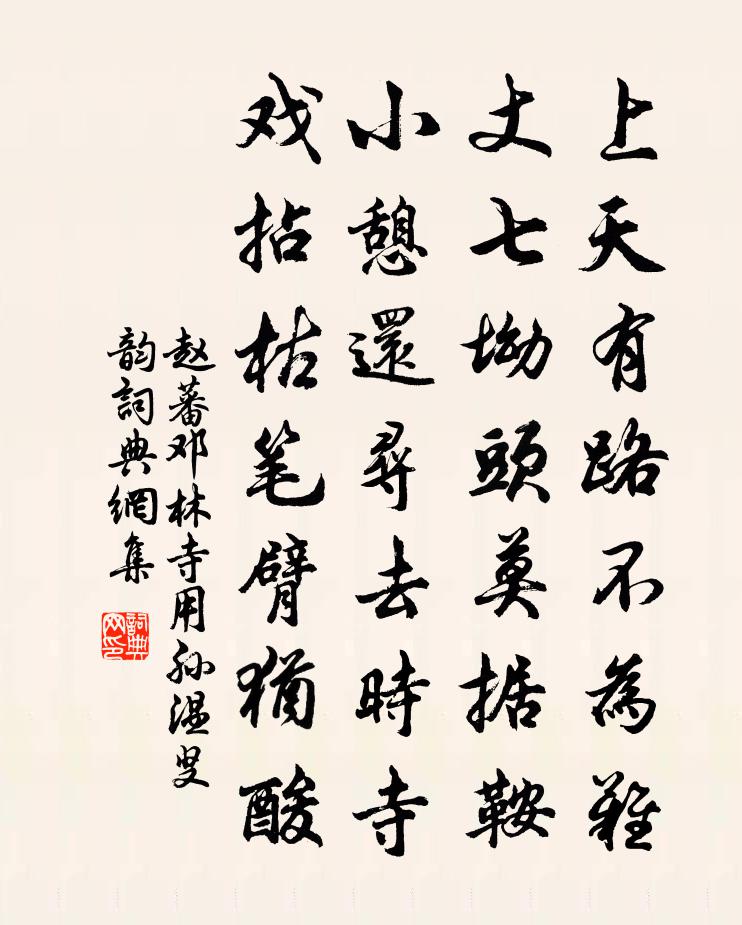 上天有路不為難
丈七坳頭莫据鞍
小憩還尋去時寺
戏拈枯笔臂猶酸
赵蕃邓林寺用孙温叟
韵詞典網集
詞典
网印